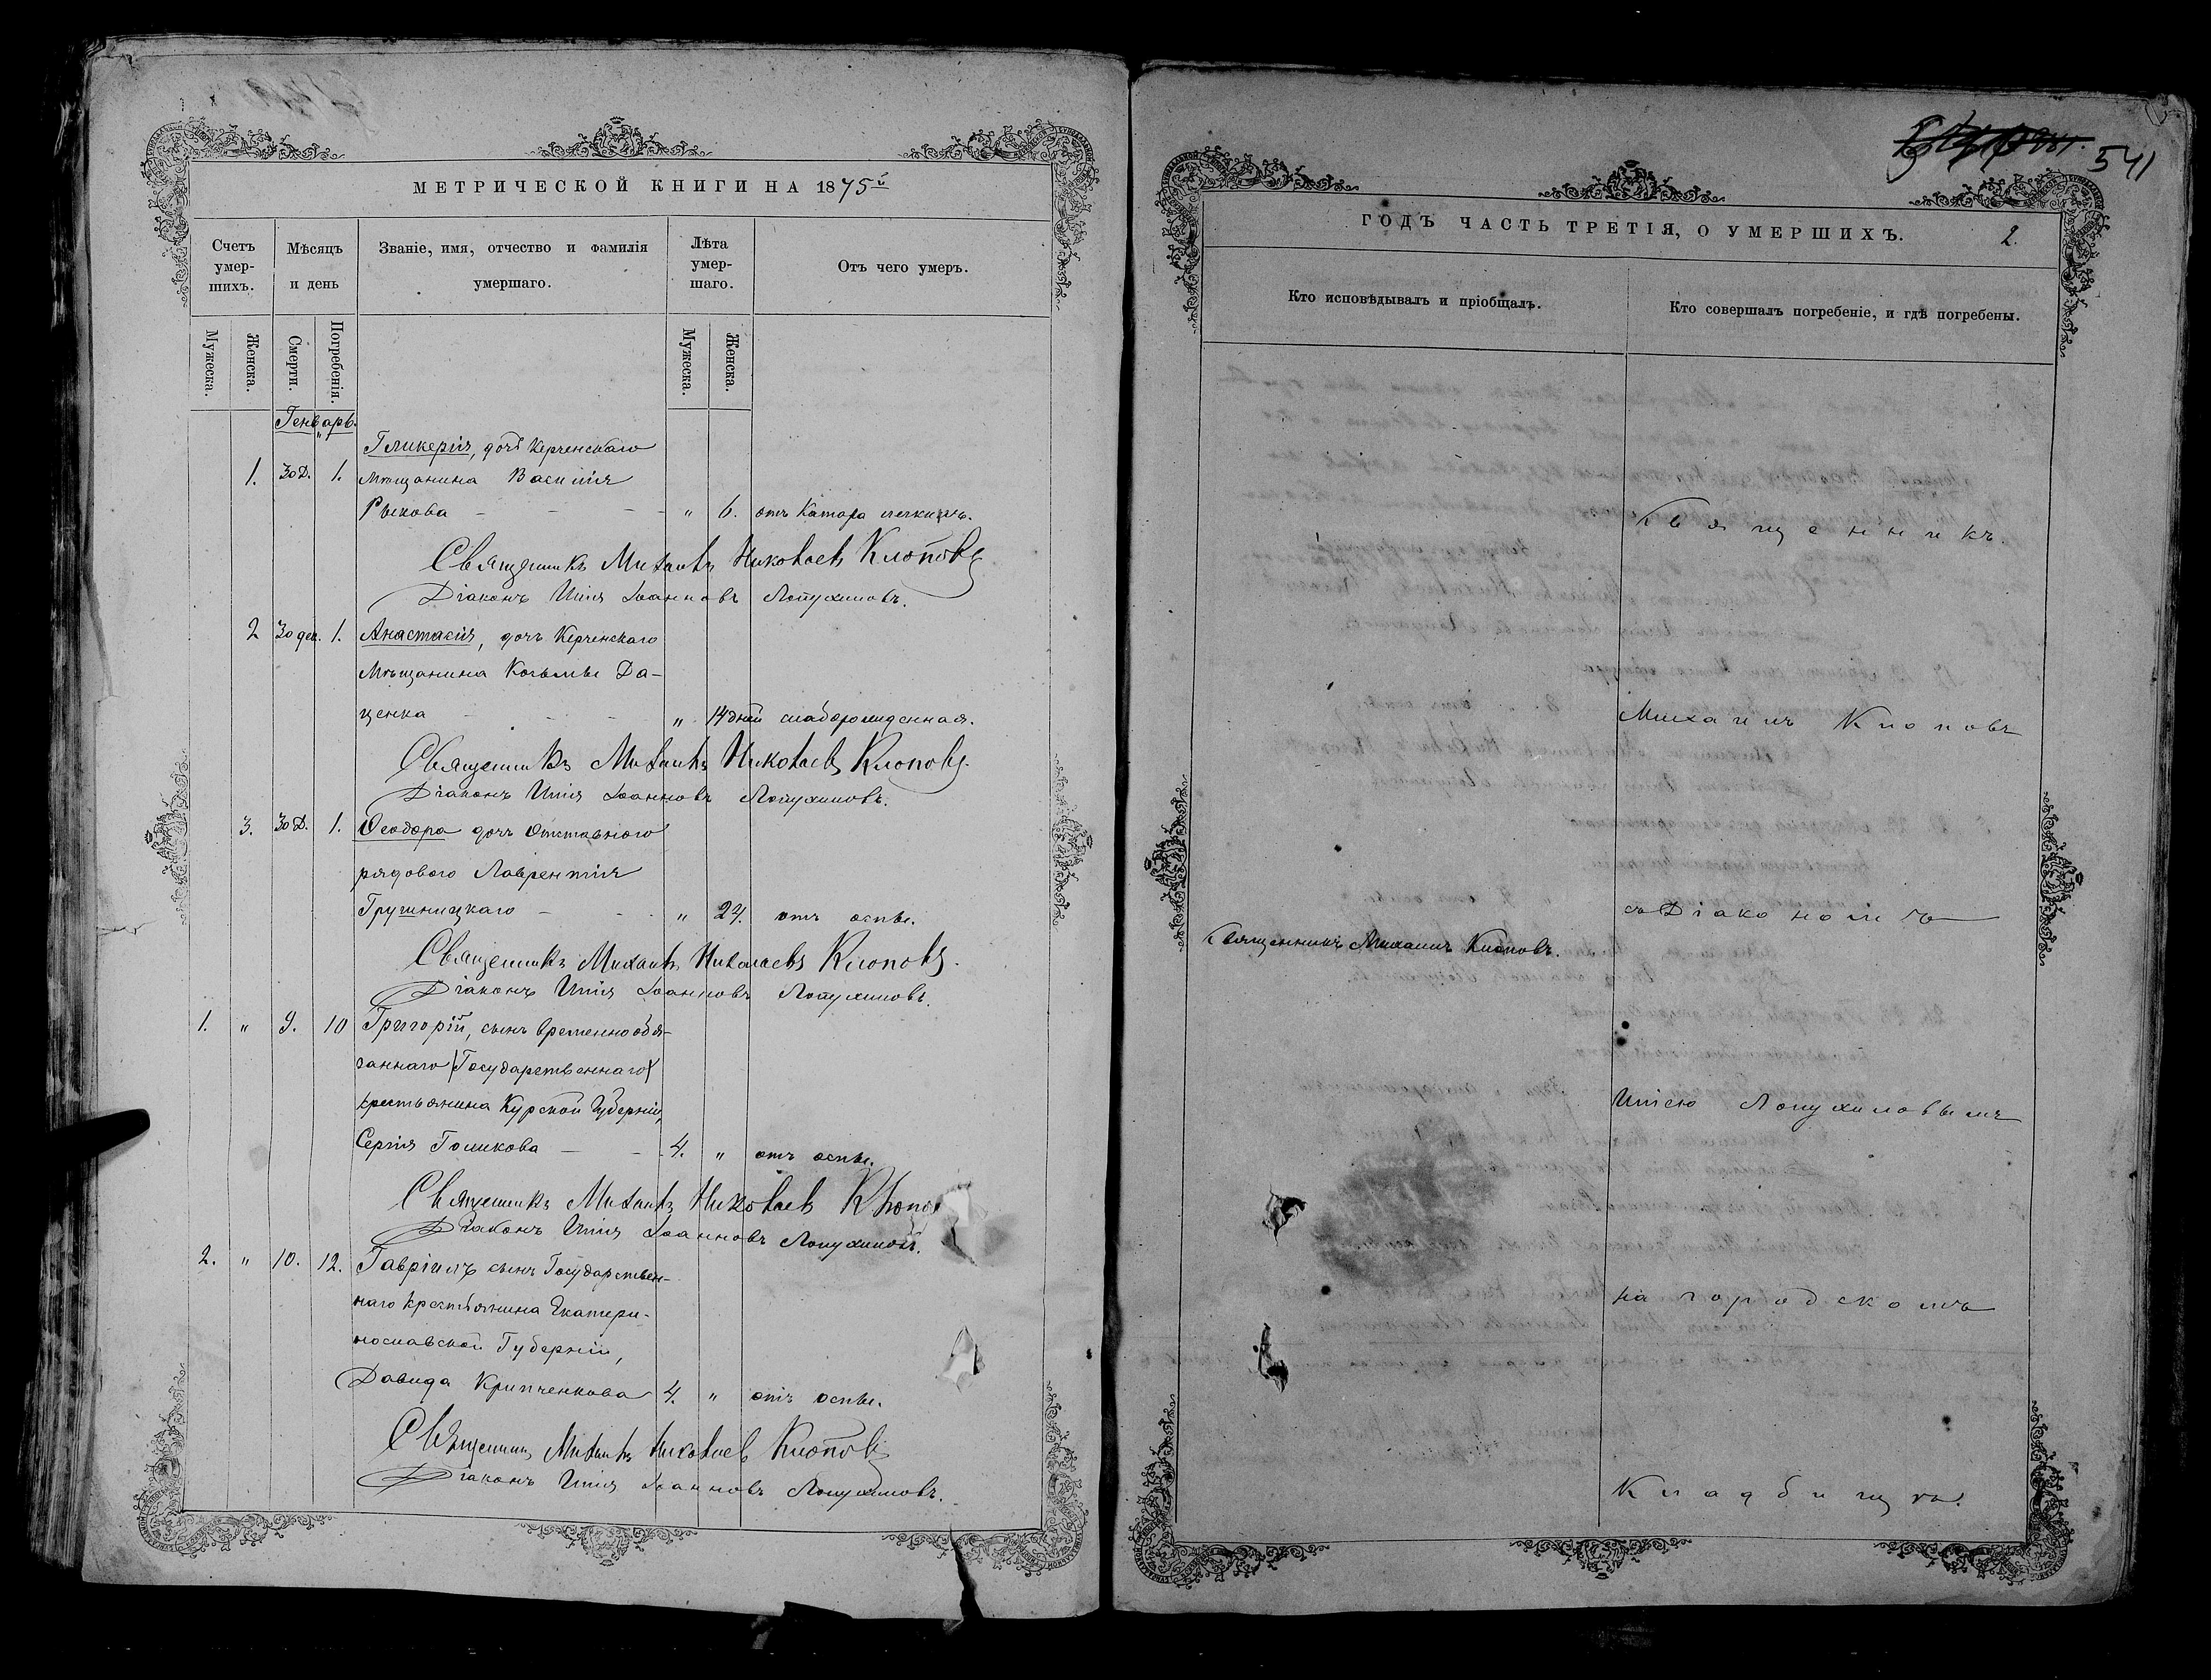 МЕТРИЧЕСКОЙ КНИГИ НА 1875й
Счетъ умер-шихъ.
Мѣсяцъ и день
Званіе, имя, отчество и фамилія умершаго.
Лѣта умер-шаго.
Отъ чего умеръ.
Мужеска.
Женска.
Смерти.
Погребенія.
Мужеска.
Женска.
Генварь.
Гликерія, дочь Керченскаго
1. 30 Д. 1. мѣщанина Василія
Рыкова - - - " 6. отъ катара легкихъ.
Священникъ Михаилъ Николаевъ Клоповъ
Діаконъ Илія Іоанновъ Лопухиновъ.
2 30 дек. 1. Анастасія, дочь Керченскаго
мѣщанина Козьмы Да-
ценка - - - " 14 дней слаборожденная.
Священникъ Михаилъ Николаевъ Клоповъ.
Діаконъ Илія Іоанновъ Лопухиновъ.
3. 30 Д. 1. Ѳеодора дочь отставного
рядового Лаврентія
Грушницкаго - - " 24. отъ оспы.
Священникъ Михаилъ Николаевъ Клоповъ.
Діаконъ Илія Іоанновъ Лопухиновъ.
1. " 9. 10 Григорій, сынъ временнообя-
заннаго (Государственнаго)
крестьянина Курской Губерніи,
Сергія Голикова - - 4. " отъ оспы.
Священникъ Михаилъ Николаевъ Клопо
Діаконъ Илія Іоанновъ Лопухиновъ.
2. " 10. 12. Гавріилъ сынъ Государствен-
наго крестьянина Екатери-
нославской Губерніи,
Давида Крипченкова 4. " отъ оспы.
Священникъ Михаилъ Николаевъ Клоповъ
Діаконъ Илія Іоанновъ Лопухиновъ.
541
ГОДЪ ЧАСТЬ ТРЕТІЯ, О УМЕРШИХЪ. 2.
Кто исповѣдывалъ и пріобщалъ.
Кто совершалъ погребеніе, и гдѣ погребены.
Священникъ Михаилъ Клоповъ.
Священникъ
Михаилъ Клоповъ
съ Діакономъ
Иліею Лопухиновымъ
на городскомъ
Кладбищѣ.